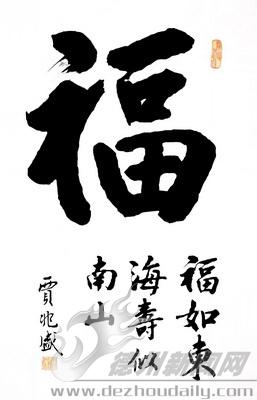 福
福如東
海壽似
南山
賈兆盛
德州新聞网
www.dezhoudaily.com